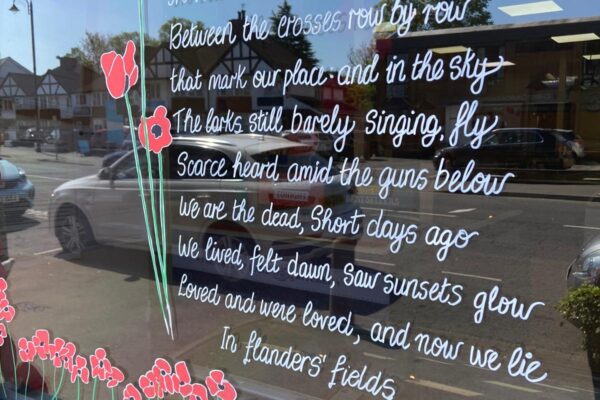 Between the crosses row by row
that mark our place: and in the sky
The larks still barely singing, fly
Scarce heard amid the guns below
We are the dead, Short days ago
We lived, felt dawn, Saw sunsets glow
Loved and were loved, and now we lie
In flanders' fields